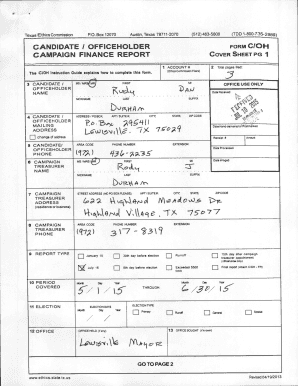 Texas Ethics Commission P.O. Box 12070 Austin, Texas 78711-2070 (512) 463-5800 (TDD 1-800-735-2989)
CANDIDATE / OFFICEHOLDER
CAMPAIGN FINANCE REPORT
FORM C/OH
COVER SHEET PG 1
The C/OH Instruction Guide explains how to complete this form.
1 ACCOUNT #
2 Total pages filed:
3
3 CANDIDATE / OFFICEHOLDER NAME
FIRST MI
Rudy
NICKNAME LAST SUFFIX
Durham
OFFICE USE ONLY
Date Received
4 CANDIDATE / OFFICEHOLDER MAILING ADDRESS
change of address
ADDRESS / PO BOX; APT / SUITE #; CITY; STATE; ZIP CODE
P.o Box 295411
Lewisville, TX 75029
5 CANDIDATE / OFFICEHOLDER PHONE
AREA CODE PHONE NUMBER EXTENSION
(972) 436-2235
Receipt # Amount
Date Processed
Date Imaged
6 CAMPAIGN TREASURER NAME
FIRST MI
Rudy J
NICKNAME LAST SUFFIX
Durham
7 CAMPAIGN TREASURER ADDRESS
(residence or business)
STREET ADDRESS (NO PO BOX PLEASE); APT / SUITE #; CITY; STATE; ZIP CODE
622 Highland Meadows Dr
Highland Village, TX 75077
8 CAMPAIGN TREASURER PHONE
AREA CODE PHONE NUMBER EXTENSION
(972) 317-8319
9 REPORT TYPE
January 15 30th day before election Runoff 15th day after campaign treasurer appointment
July 15 8th day before election Exceeded $500 limit Final report
10 PERIOD COVERED
Month Day Year Month Day Year
5 / 1 / 15 THROUGH 6 / 30 / 15
11 ELECTION
ELECTION DATE
Month Day Year
ELECTION TYPE
Primary Runoff General Special
12 OFFICE
OFFICE HELD (if any)
Lewisville Mayor
13 OFFICE SOUGHT (if known)
GO TO PAGE 2
www.ethics.state.tx.us
Revised 04/19/2013